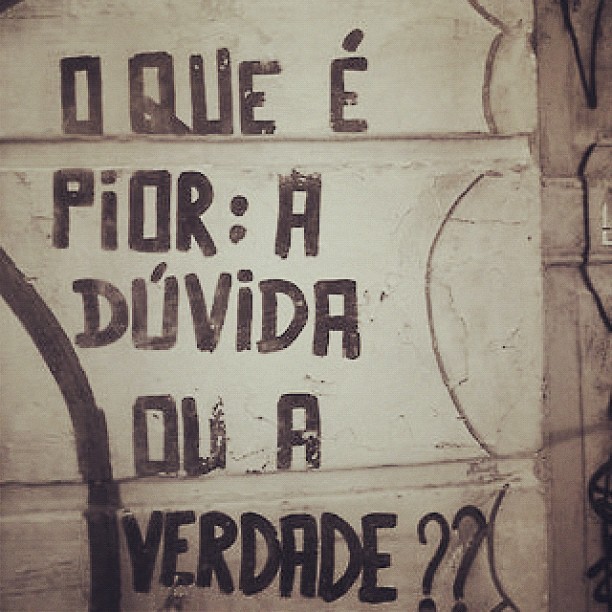 O QUE É
PiOR: A
DÚViDA
OU A
VERDADE??